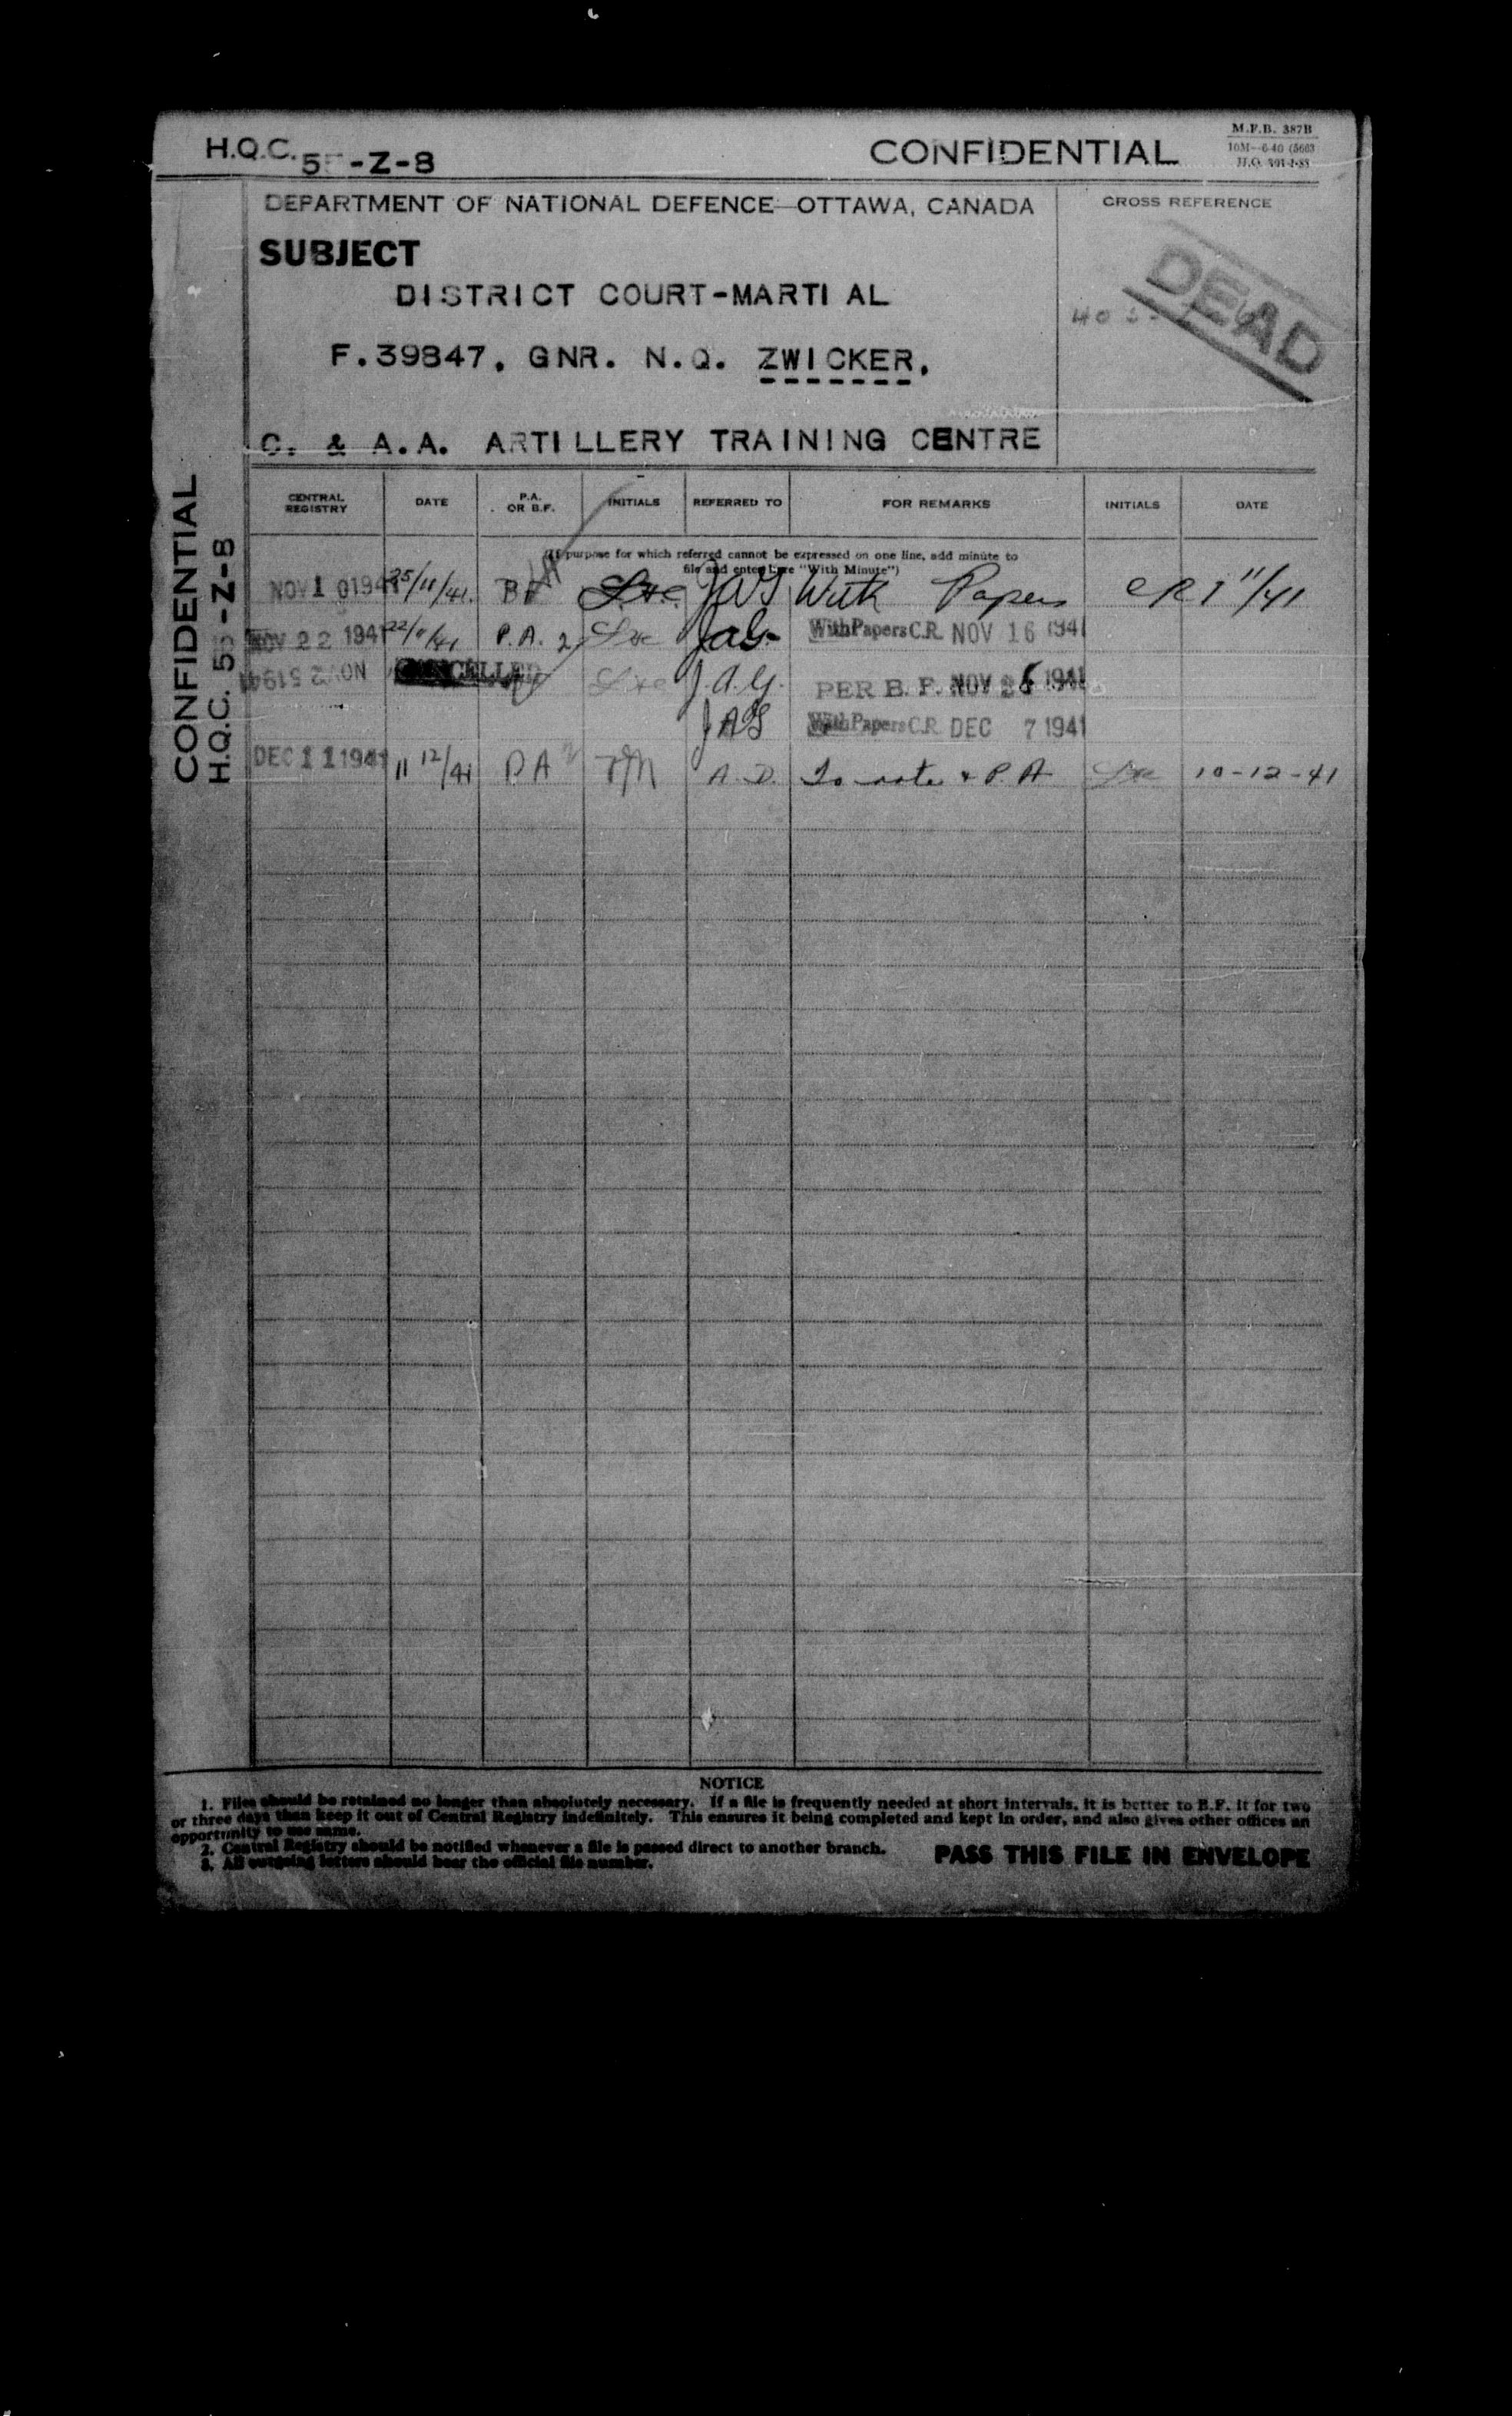 M.F.B. 387B
H.Q.C. 55-Z-8 CONFIDENTIAL
10M—6-40 (5603
H.Q.
DEPARTMENT OF NATIONAL DEFENCE—OTTAWA, CANADA CROSS REFERENCE
SUBJECT
DEAD
DISTRICT COURT-MARTI AL
F.39847, GNR. N.Q. ZWICKER.
C. & A.A. ARTILLERY TRAINING CENTRE
CONFIDENTIAL
H.Q.C. 55-Z-8
CENTRAL REGISTRY DATE P.A. OR B.F. INITIALS REFERRED TO FOR REMARKS INITIALS DATE
(If purpose for which referred cannot be expressed on one line, add minute to
file and enter here "With Minute")
NOV 10 1941 25/11/41. BF JAG With Papers CR 1 11/41
NOV 22 1941 22/11/41 P.A. 2 JaG With Papers C.R. NOV 16 1941
NOV 25 1941 CANCELLED J.A.G. PER B. F. NOV 26 1941
JAG With Papers C.R. DEC 7 1941
DEC 11 1941 11 12/41 P A A.D. To note & P.A 10-12-41
NOTICE
1. Files should be retained no longer than absolutely necessary. If a file is frequently needed at short intervals, it is better to B.F. it for two
or three days than keep it out of Central Registry indefinitely. This ensures it being completed and kept in order, and also gives other offices an
opportunity to use same.
2. Central Registry should be notified whenever a file is passed direct to another branch.
3. All outgoing letters should bear the official file number.
PASS THIS FILE IN ENVELOPE